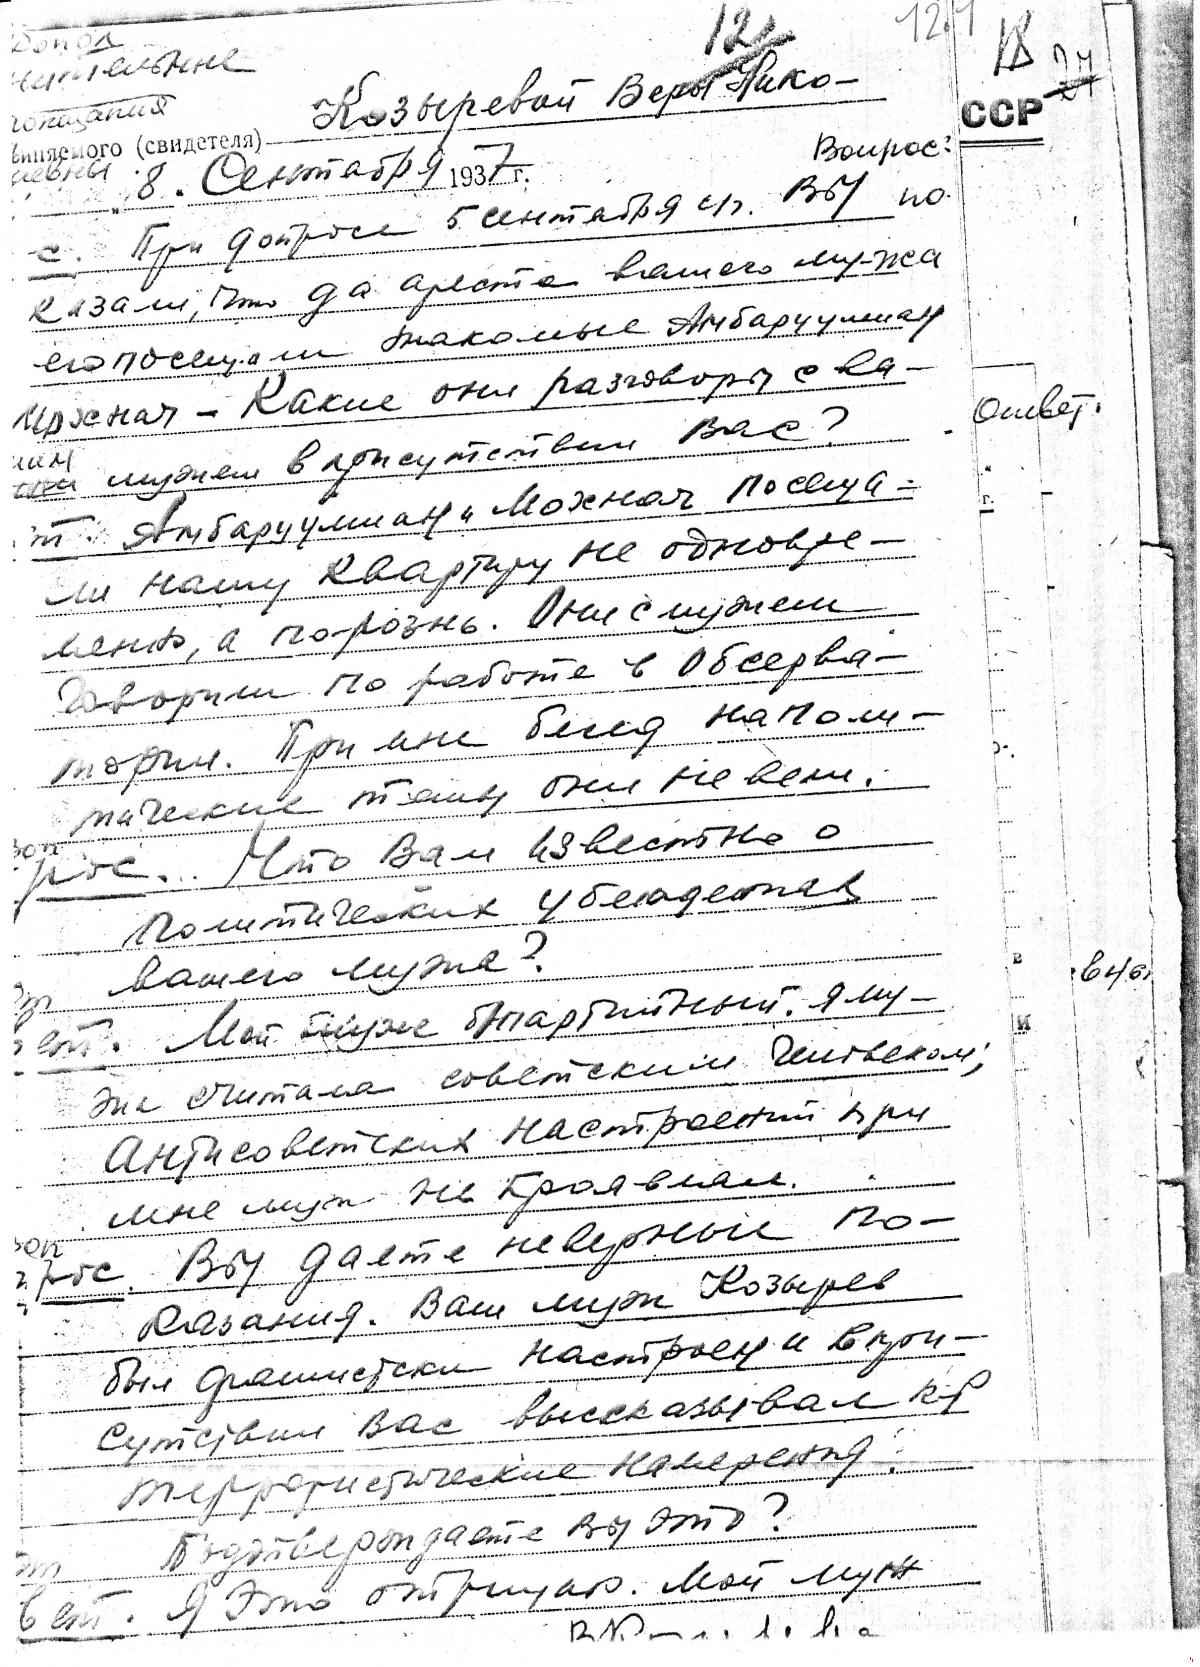 12.1
12
18
СССР
Допол
нительные
показания
виняемого (свидетеля)
Козыревой Веры Нико-
лаевны
8. Сентября 1937 г.
Вопрос:
с. При допросе 5 сентября с/г. Вы по
казали, что до ареста вашего мужа
его посещали знакомые Амбарцумиан
и Мохнач – Какие они разговоры с ва-
шим мужем в присутствии Вас?
Ответ.
т. Амбарцумиан и Мохнач посеща-
ли нашу квартиру не одновре-
менно, а порознь. Они с мужем
говорили по работе в Обсерва-
тории. При мне бесед на поли-
тические темы они не вели.
Воп
рос. Что Вам известно о
политических убеждениях
вашего мужа?
От
вет. Мой муж беспартийный. Я му-
жа считала советским человеком;
антисоветских настроений при
мне муж не проявлял.
Воп
рос. Вы даете неверные по-
казания. Ваш муж Козырев
был фашистски настроен и в при-
сутствии Вас высказывал к-р
террористические намерения.
Подтверждаете Вы это?
От
вет. Я это отрицаю. Мой муж